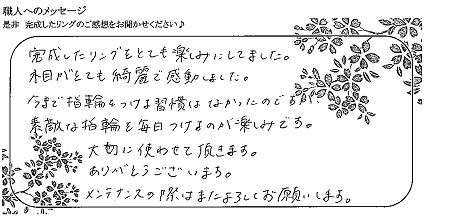 職人へのメッセージ
是非 完成したリングのご感想をお聞かせください♪
完成したリングをとても楽しみにしてました。
木目がとても綺麗で感動しました。
今まで指輪をつける習慣はなかったのですが、
素敵な指輪を毎日つけるのが楽しみです。
大切に使わせて頂きます。
ありがとうございます。
メンテナンスの際はまたよろしくお願いします。